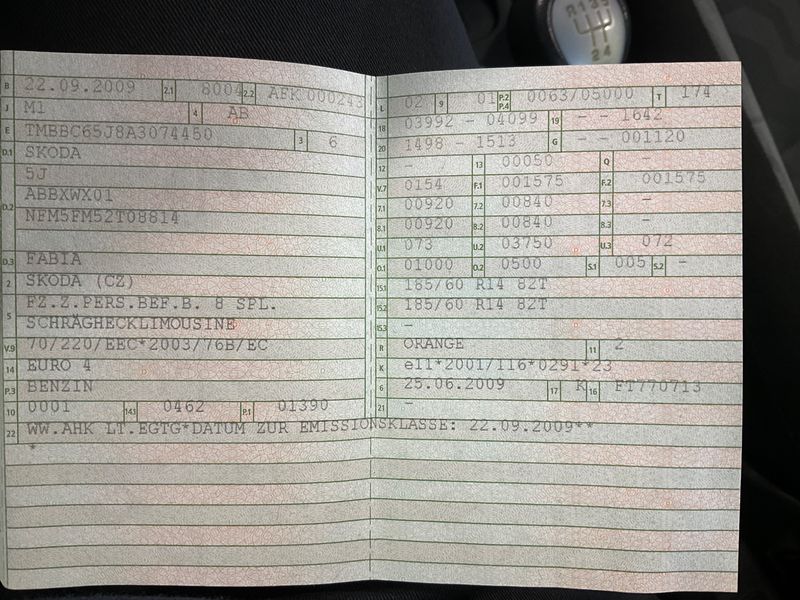 R 1 3 5
2 4
B 22.09.2009 2.1 8004 2.2 AFK000243
J M1 4 AB
E TMBBC65J8A3074450 3 6
D.1 SKODA
5J
D.2 ABBXWX01
NFM5FM52T08814
D.3 FABIA
2 SKODA (CZ)
5 FZ.Z.PERS.BEF.B. 8 SPL.
SCHRÄGHECKLIMOUSINE
V.9 70/220/EEC*2003/76B/EC
14 EURO 4
P.3 BENZIN
10 0001 14.1 0462 P.1 01390
L 02 9 01 P.2 P.4 0063/05000 T 174
18 03992 - 04099 19 - - 1642
20 1498 - 1513 G - - 001120
12 - 13 00050 Q -
V.7 0154 F.1 001575 F.2 001575
7.1 00920 7.2 00840 7.3 -
8.1 00920 8.2 00840 8.3 -
U.1 073 U.2 03750 U.3 072
O.1 01000 O.2 0500 S.1 005 S.2 -
15.1 185/60 R14 82T
15.2 185/60 R14 82T
15.3 -
R ORANGE 11 2
K e11*2001/116*0291*23
6 25.06.2009 17 K 16 FT770713
21 -
22 WW.AHK LT.EGTG*DATUM ZUR EMISSIONSKLASSE: 22.09.2009**
*